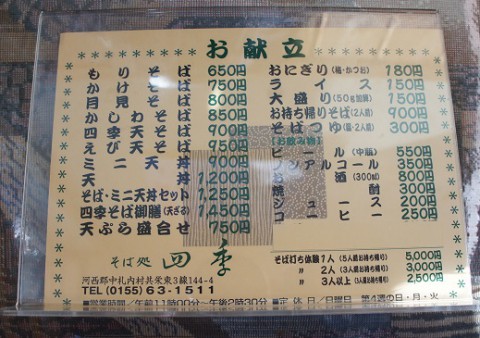 お献立
もりそば 650円
かけそば 750円
月見そば 800円
かしわそば 850円
四季そば 900円
えび天そば 950円
ミニ天丼 900円
天丼 1,200円
そば・ミニ天丼セット 1,250円
四季そば御膳(天ざる) 1,450円
天ぷら盛合せ 750円
おにぎり(梅・かつお) 180円
ライス 150円
大盛り(50g加算) 150円
お持ち帰りそば(2人前) 900円
そばつゆ 300円
[お飲み物]
ビール(中瓶) 550円
ノンアルコール 350円
お酒(300㎖) 800円
焼酎 300円
ジュース
コーヒー 250円
そば処 四季
河西郡中札内村共栄東3線144-4
TEL (0155) 63-1511
■営業時間/午前11時00分〜午後2時30分 ■定休日/日曜日 第4週の日・月・火
そば打ち体験1人(5人前お持ち帰り) 5,000円
〃 2人(3人前お持ち帰り) 3,000円
〃 3人以上(3人前お持ち帰り) 2,500円